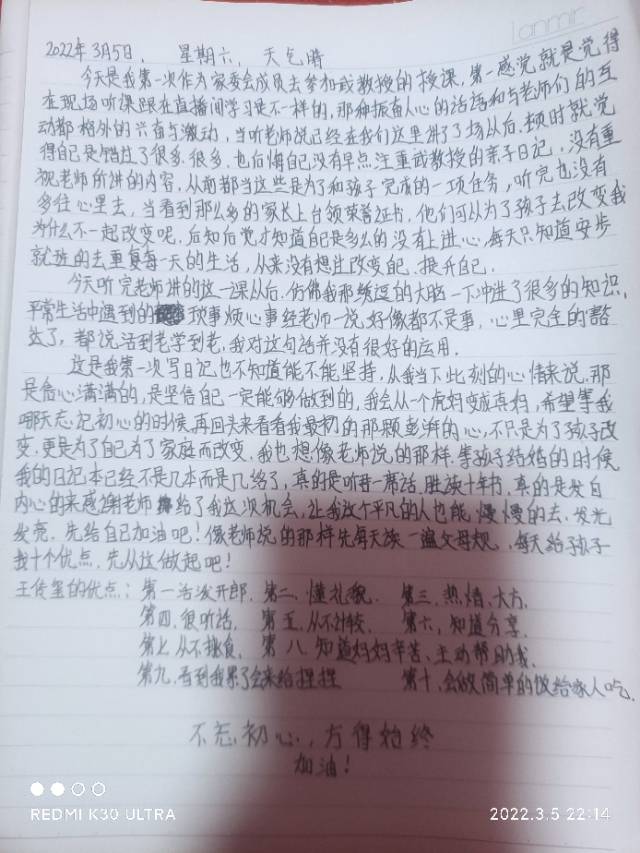 lanmir
2022年3月5日, 星期六, 天气晴
今天是我第一次作为家委会成员去参加武教授的授课,第一感觉就是觉得
在现场听课跟在直播间学习是不一样的,那种振奋人心的话语和与老师们的互
动都格外的兴奋与激动,当听老师说已经在我们这里讲了了场从后,顿时就觉
得自己是错过了很多,很多,也后悔自己没有早点注重武教授的亲子日记,没有重
视老师所讲的内容,从前都当这些是为了和孩子完成的一项任务,听完也没有
多往心里去,当看到那么多的家长上台领荣誉证书,他们可以为了孩子去改变我
为什么不一起改变呢,后知后觉才知道自己是多么的没有上进心,每天只知道安步
就班的去重复每一天的生活,从来没有想过改变自己、提升自己.
今天听完老师讲的这一课从后,仿佛我那绣逗的大脑一下冲进了很多的知识,
平常生活中遇到的琐事烦心事经老师一说,好像都不是事,心里完全的豁
达了,都说活到老学到老,我对这句话并没有很好的运用.
这是我第一次写日记,也不知道能不能坚持,从我当下此刻的心情来说,那
是信心满满的,是坚信自己一定能够做到的,我会从一个虎妈变成真妈,希望等我
哪天忘记初心的时候,再回头来看看我最初的那颗彭湃的心,不只是为了孩子改
变,更是为了自己为了家庭而改变,我也想像老师说的那样,等孩子结婚的时候
我的日记本已经不是几本而是几络了,真的是听君一席话,胜读十年书,真的是发自
内心的来感谢老师给了我这次机会,让我这个平凡的人也能慢慢的去,发光
发亮,先给自己加油吧!像老师说的那样先每天读一遍父母规,每天给孩子
找十个优点,先从这做起吧!
的优点: 第一活泼开郎, 第二、懂礼貌. 第三、热情、大方,
第四、很听话, 第五、从不计较, 第六,知道分享,
第七从不挑食, 第八、知道妈妈辛苦、主动帮助我,
第九、看到我累了会来给捏捏 第十、会做简单的饭给家人吃,
不忘初心,方得始终
加油!
REDMI K30 ULTRA
2022.3.5 22:14